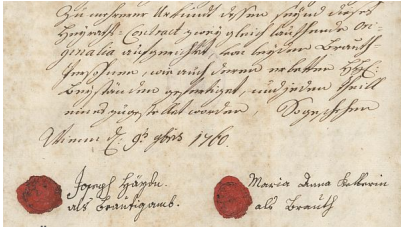 Zu mehrerer Urkund dessen seynd dieses
Heyraths-Contract zwey gleich lauthende Ori-
ginalia aufgerichtet, von beyden Brauth-
Persohnen, wie auch deren erbettenen
Beyständen gefertiget, und jeden Theill
eines zugestellet worden, So geschehen
Wienn d. 9t 9bris 1760.
Joseph Haydn
als Breutigamb.
Maria Anna Kellerin
als Brauth